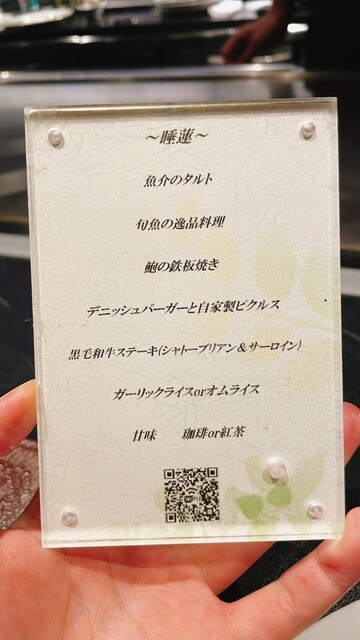 ～睡蓮～
魚介のタルト
旬魚の逸品料理
鮑の鉄板焼き
デニッシュバーガーと自家製ピクルス
黒毛和牛ステーキ(シャトーブリアン＆サーロイン)
ガーリックライスorオムライス
甘味　　珈琲or紅茶